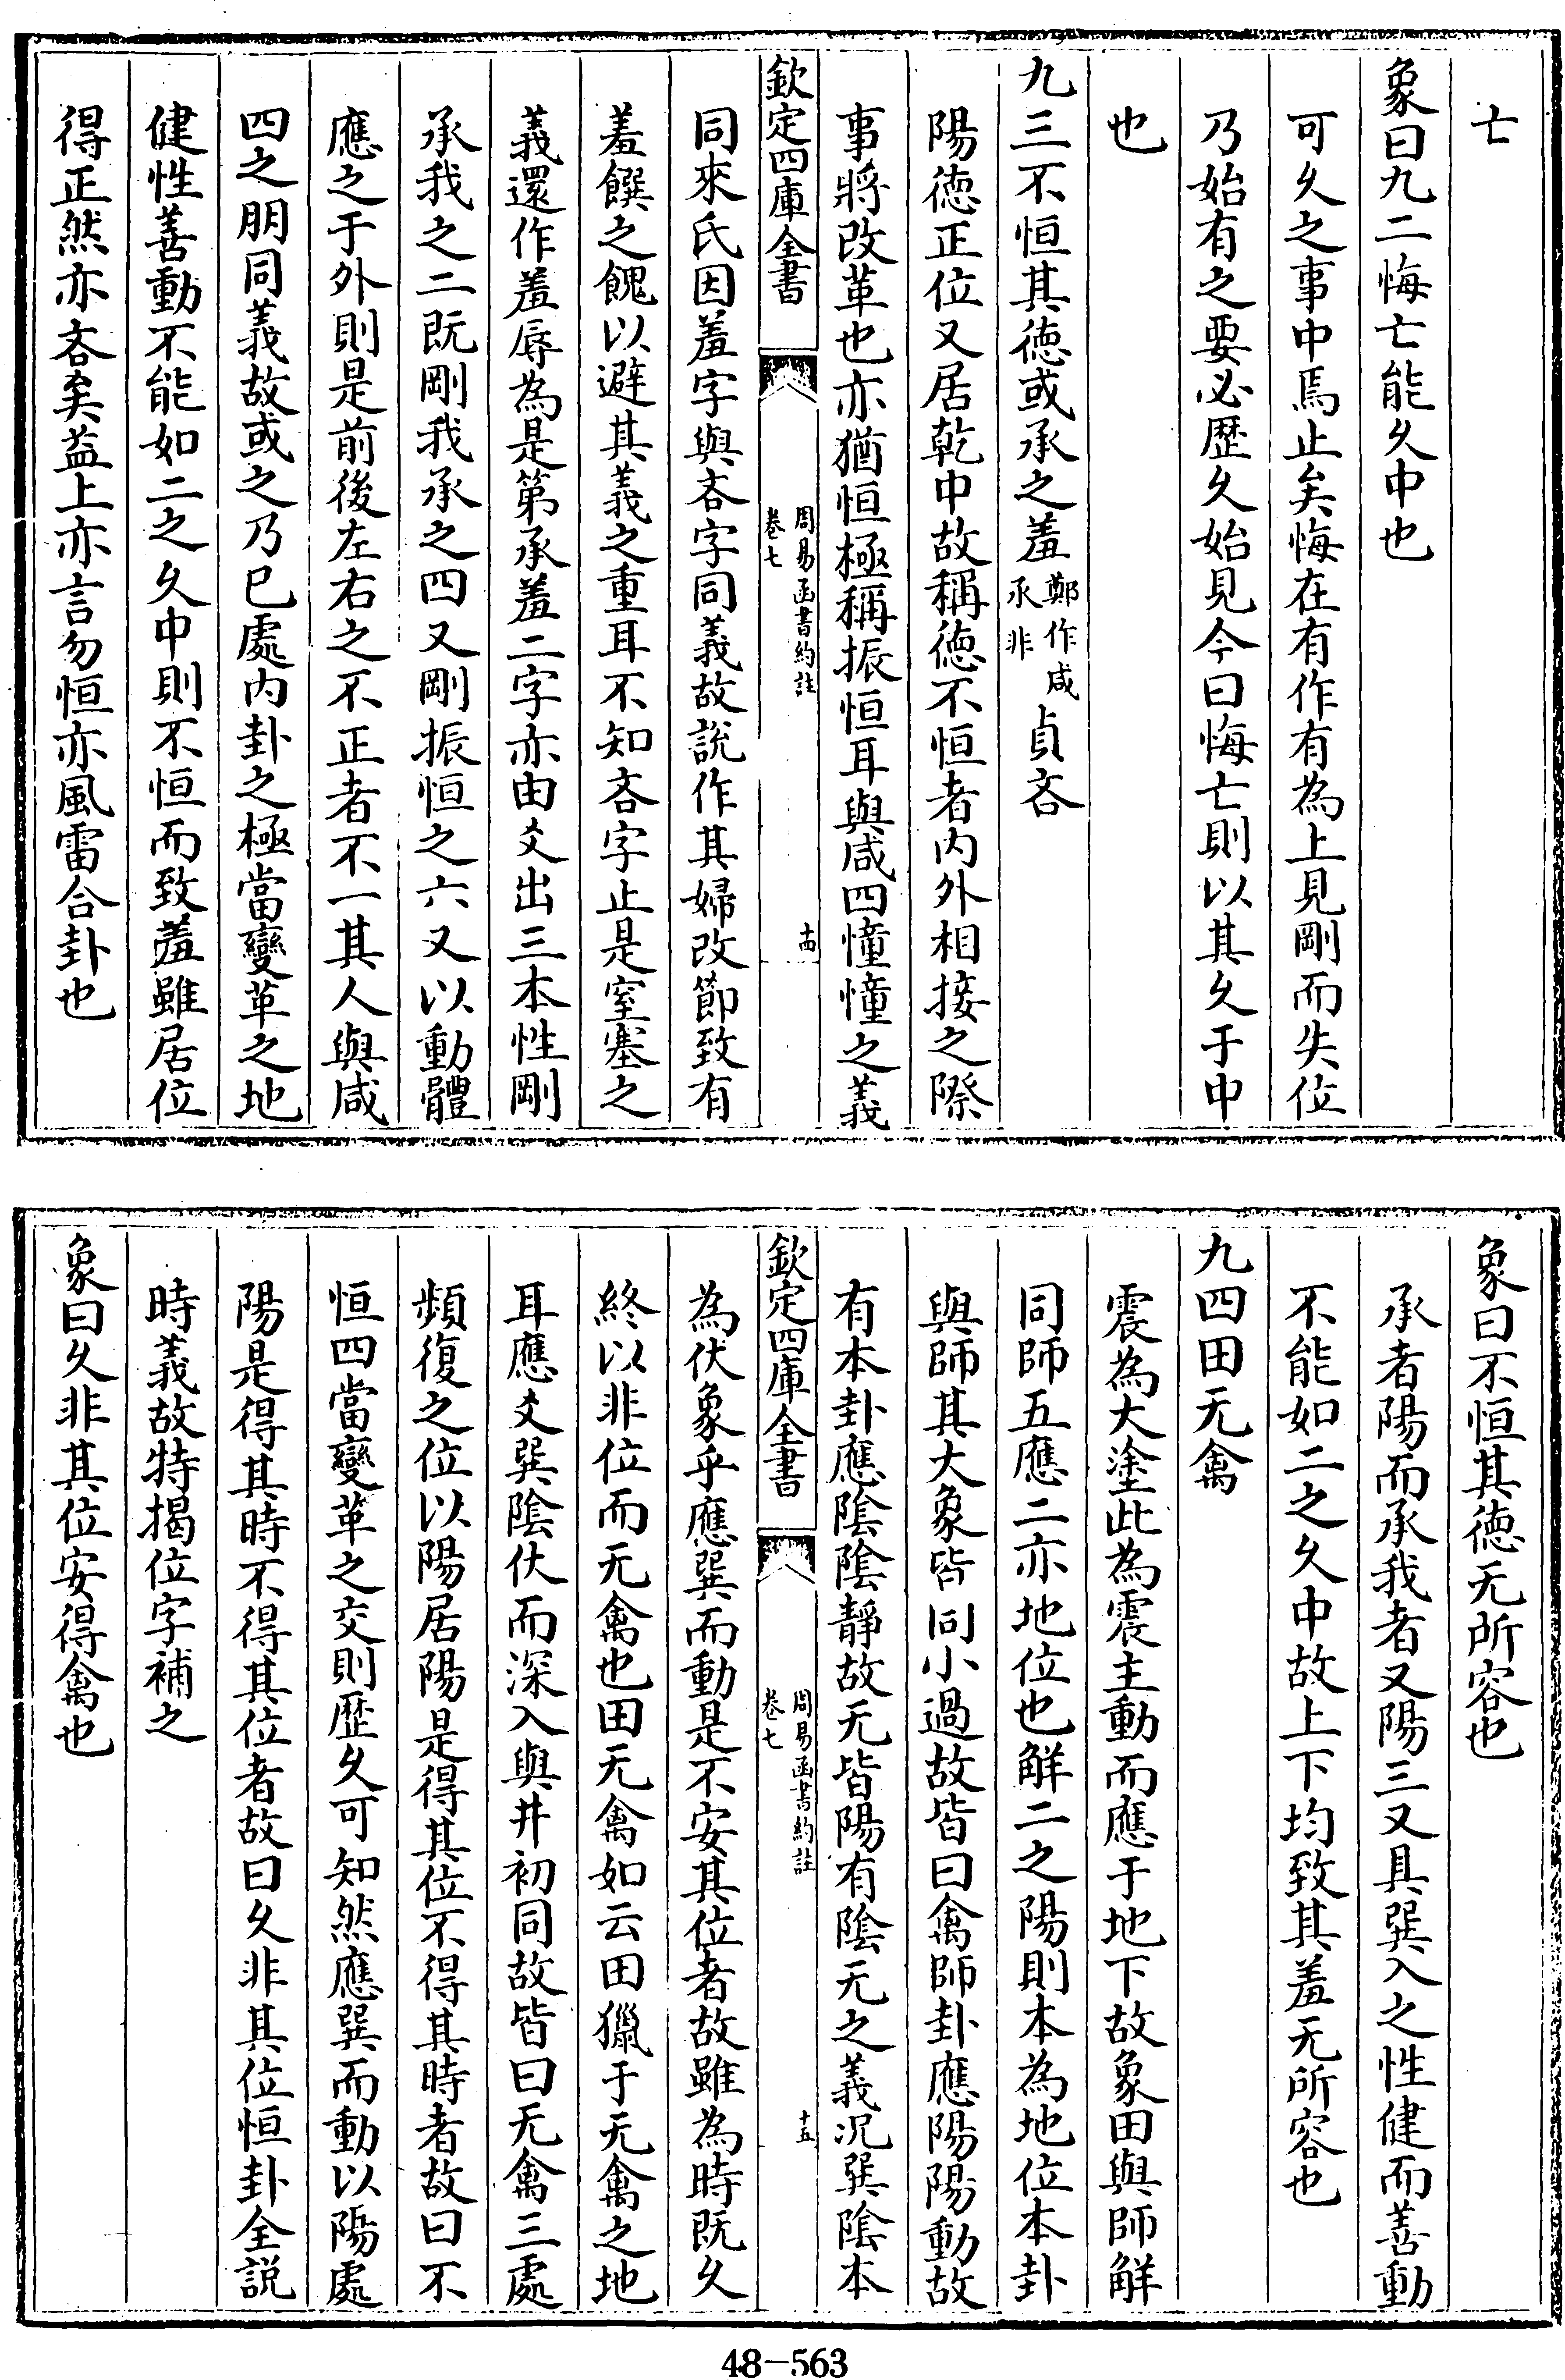 亡
象曰九二悔亡能久中也
可久之事中焉止矣悔在有作有為上見剛而失位
乃始有之要必歷久始見今曰悔亡則以其久于中
也
九三不恒其德或承之羞鄭作咸承非貞吝
陽德正位又居乾中故稱德不恒者内外相接之際
事將改革也亦猶恒極稱振恒耳與咸四憧憧之義
欽定四庫全書
周易函書約註
卷七
十四
同來氏因羞字與吝字同義故說作其婦改節致有
羞饌之餽以避其義之重耳不知吝字止是窒塞之
義還作羞辱為是第承羞二字亦由爻出三本性剛
承我之二既剛我承之四又剛振恒之六又以動體
應之于外則是前後左右之不正者不一其人與咸
四之朋同義故或之乃已處内卦之極當變革之地
健性善動不能如二之久中則不恒而致羞雖居位
得正然亦吝矣益上亦言勿恒亦風雷合卦也
象曰不恒其德无所容也
承者陽而承我者又陽三又具巽入之性健而善動
不能如二之久中故上下均致其羞无所容也
九四田无禽
震為大塗此為震主動而應于地下故象田與師解
同師五應二亦地位也解二之陽則本為地位本卦
與師其大象皆同小過故皆曰禽師卦應陽陽動故
有本卦應陰陰靜故无皆陽有陰无之義況巽陰本
欽定四庫全書
周易函書約註
卷七
十五
為伏象乎應巽而動是不安其位者故雖為時既久
終以非位而无禽也田无禽如云田獵于无禽之地
耳應爻巽陰伏而深入與井初同故皆曰无禽三處
頻復之位以陽居陽是得其位不得其時者故曰不
恒四當變革之交則歷久可知然應巽而動以陽處
陽是得其時不得其位者故曰久非其位恒卦全說
時義故特揭位字補之
象曰久非其位安得禽也
48-563